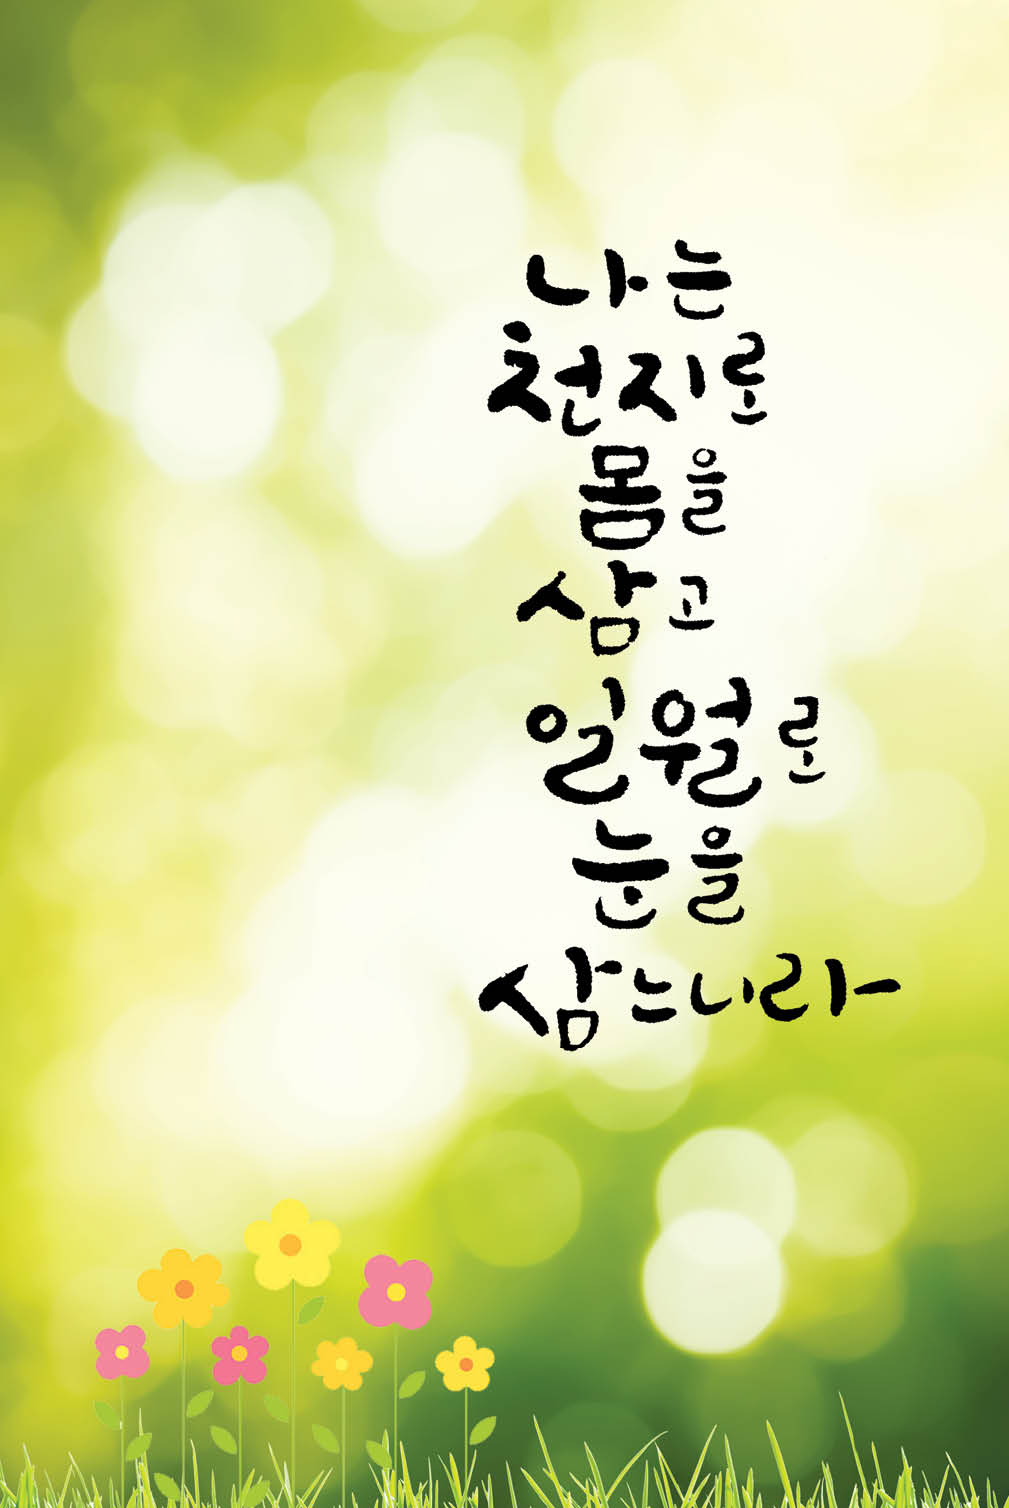 나는
천지로
몸을
삼고
일월로
눈을
삼느니라